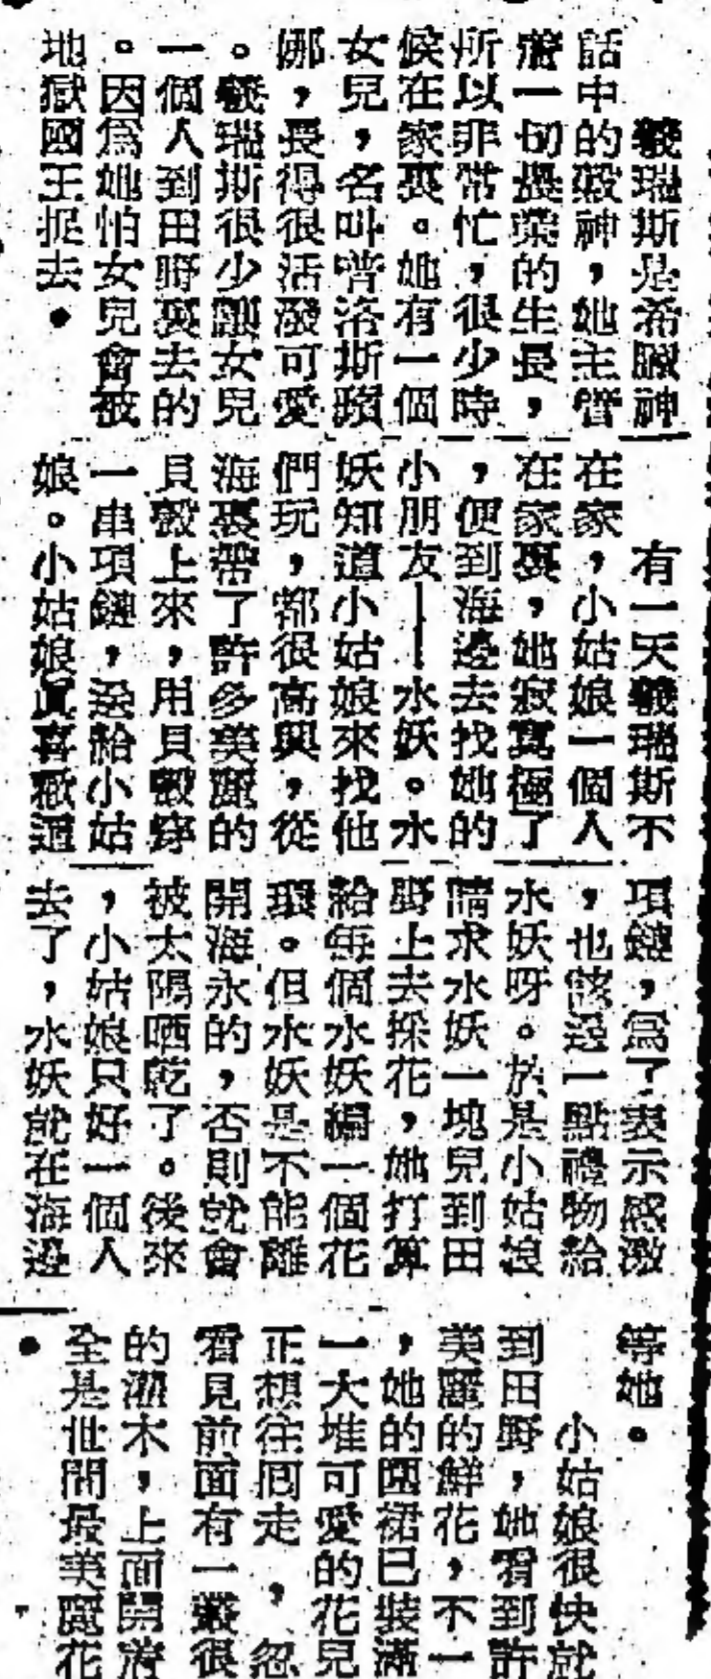 羲瑞斯是希臘神
話中的穀神，她主管
着一切農業的生長，
所以非常忙，很少時
候在家裏。她有一個
女兒，名叫普洛斯蹟
娜，長得很活潑可愛
。羲瑞斯很少讓女兒
一個人到田野裏去的
。因爲她怕女兒會被
地獄國王捉去。
有一天羲瑞斯不
在家，小姑娘一個人
在家裏，她寂寞極了
，便到海邊去找她的
小朋友——水妖。水
妖知道小姑娘來找他
們玩，都很高興，從
海裏帶了許多美麗的
貝殼上來，用貝殼穿
一串項鏈，送給小姑
娘。小姑娘眞喜歡這
項鏈，爲了表示感激
，也該送一點禮物給
水妖呀。於是小姑娘
請求水妖一塊兒到田
野上去採花，她打算
給每個水妖編一個花
環。但水妖是不能離
開海水的，否則就會
被太陽晒乾了。後來
，小姑娘只好一個人
去了，水妖就在海邊
等她。
小姑娘很快就
到田野，她看到許
美麗的鮮花，不一
，她的圍裙已裝滿
一大堆可愛的花兒
正想往回走，忽
看見前面有一叢很
的灌木，上面開着
全是世間最美麗花
。